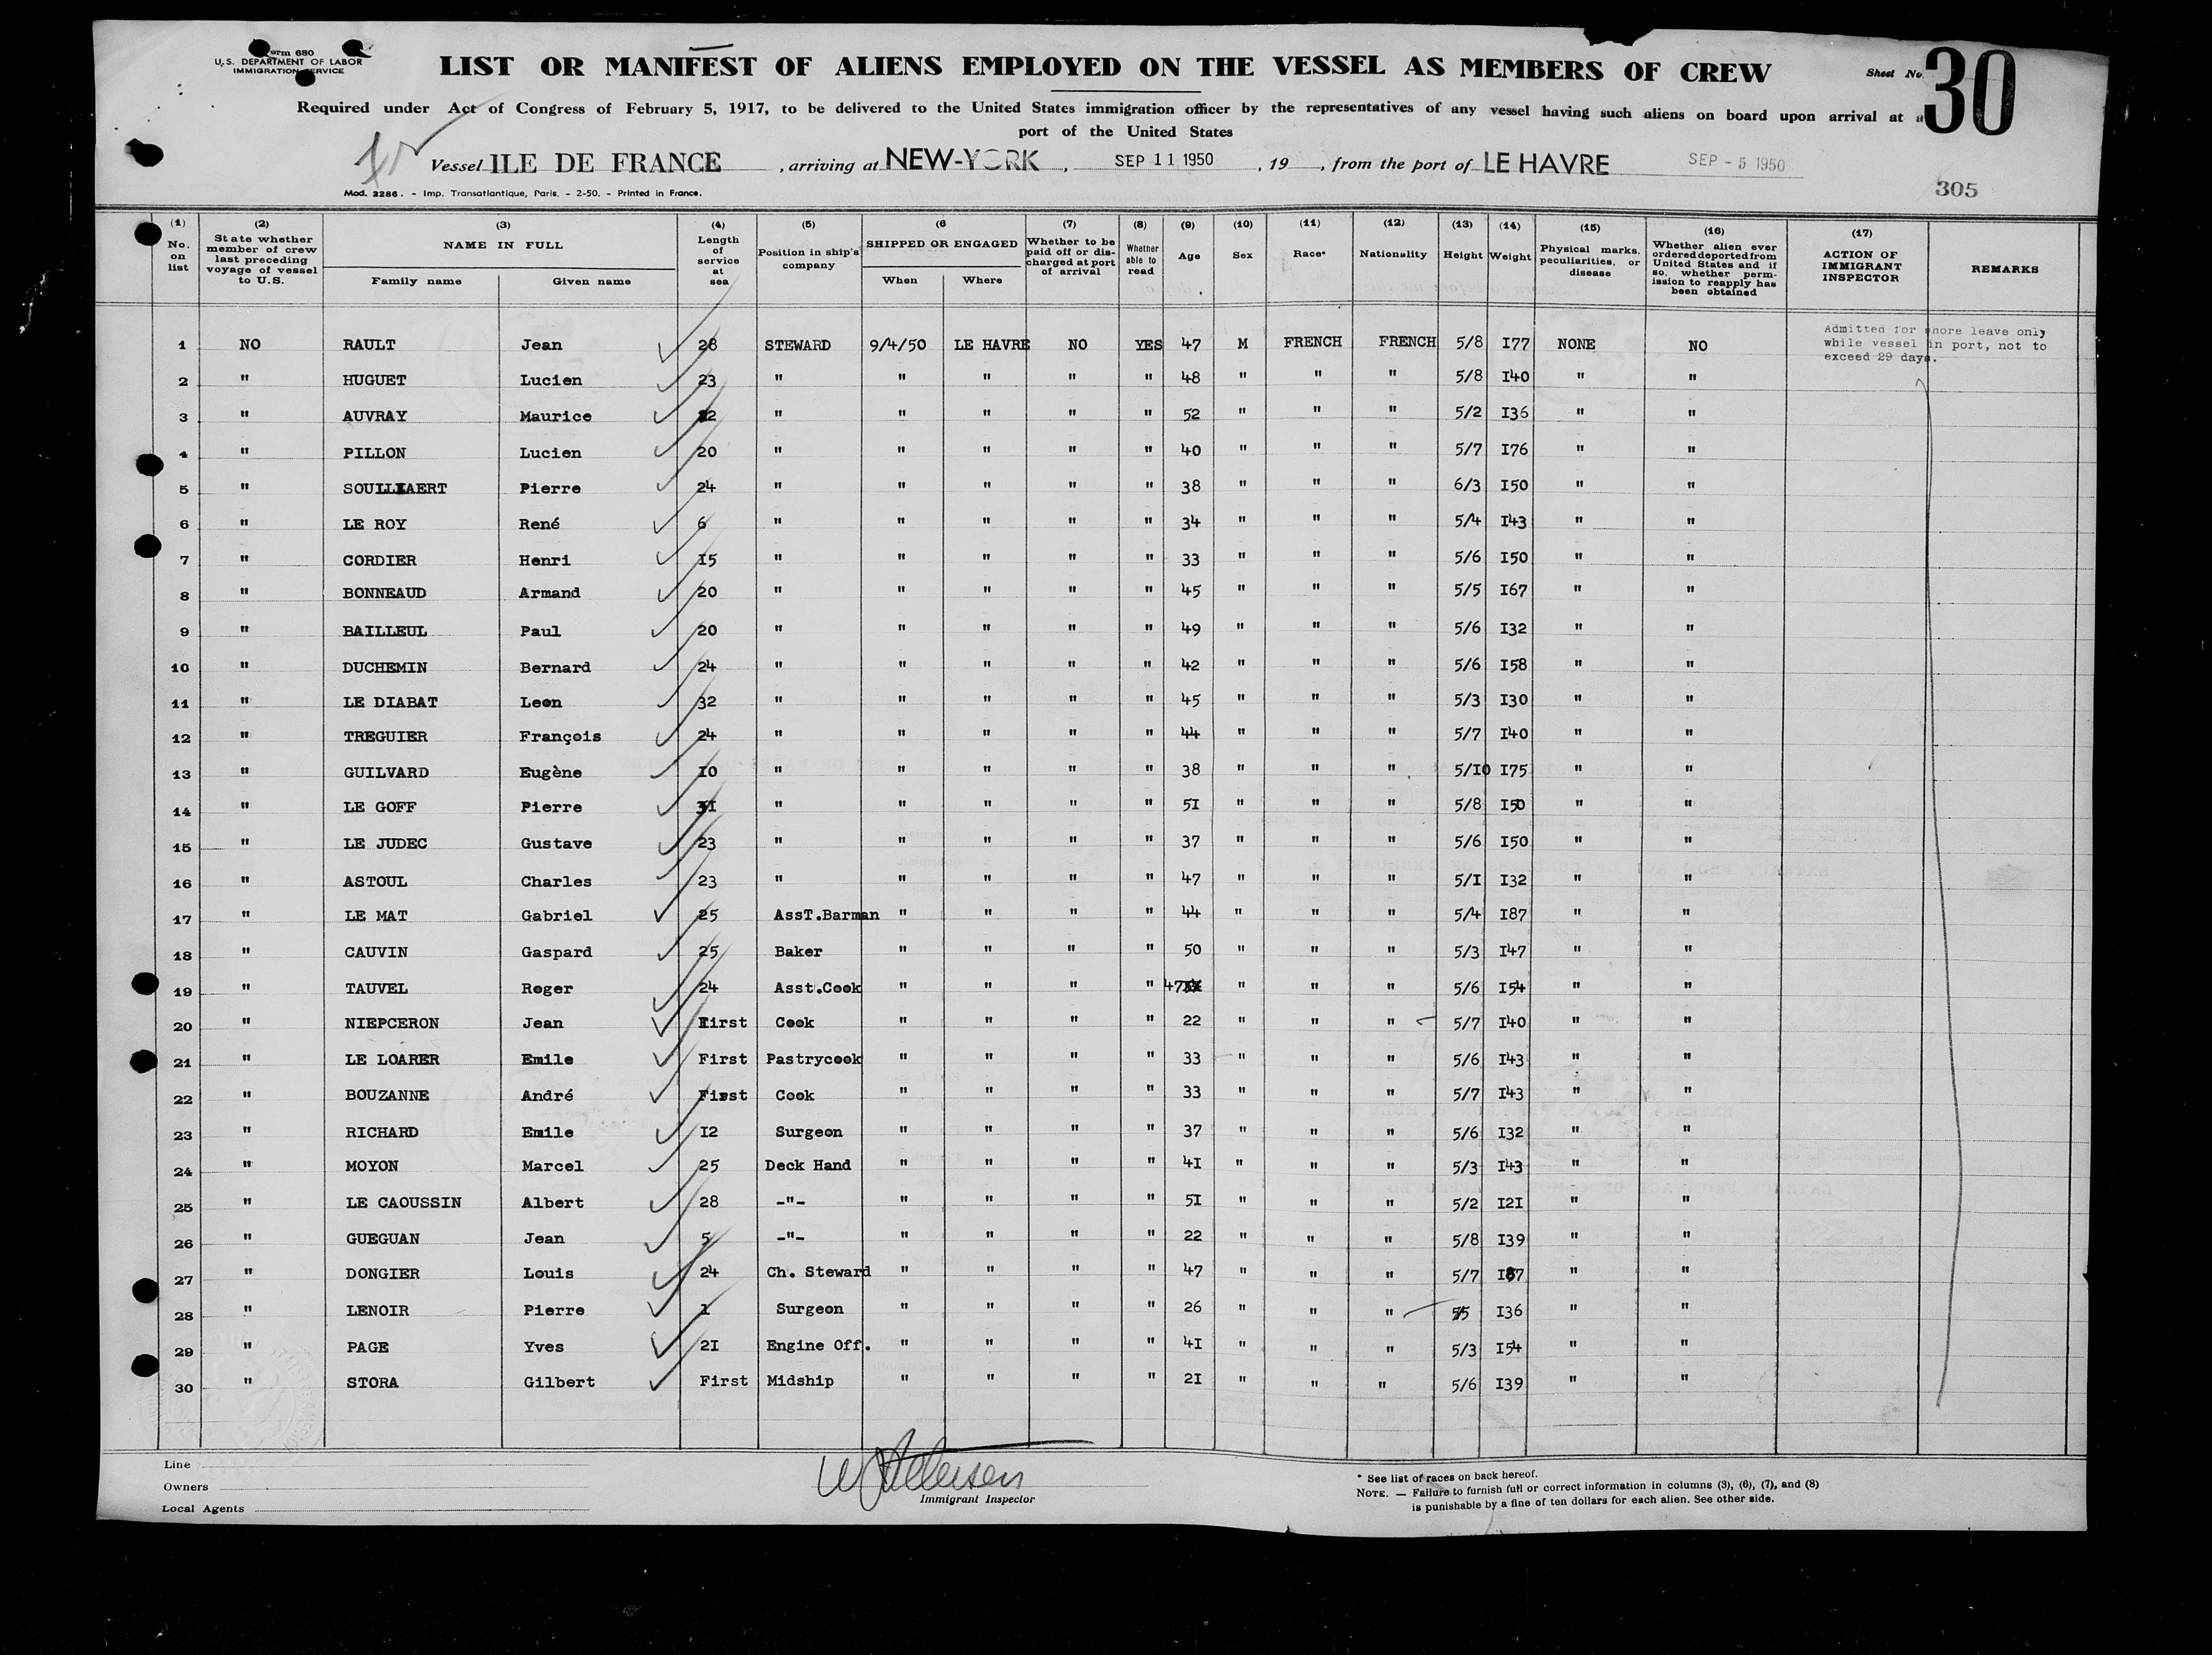 Form 680
U.S. DEPARTMENT OF LABOR
IMMIGRATION SERVICE
LIST OR MANIFEST OF ALIENS EMPLOYED ON THE VESSEL AS MEMBERS OF CREW
Sheet No. 30
Required under Act of Congress of February 5, 1917, to be delivered to the United States immigration officer by the representatives of any vessel having such aliens on board upon arrival at a
port of the United States
Vessel ILE DE FRANCE, arriving at NEW-YORK, SEP 11 1950, 19 , from the port of LE HAVRE SEP - 5 1950
Mod. 2286. - Imp. Transatlantique, Paris. - 2-50. - Printed in France.
305
(1) No. on list (2) State whether member of crew last preceding voyage of vessel to U.S. (3) NAME IN FULL Family name Given name (4) Length of service at sea (5) Position in ship's company (6 SHIPPED OR ENGAGED When Where (7) Whether to be paid off or discharged at port of arrival (8) Whether able to read (9) Age (10) Sex (11) Race* (12) Nationality (13) Height (14) Weight (15) Physical marks, peculiarities, or disease (16) Whether alien ever ordered deported from United States and if so, whether permission to reapply has been obtained (17) ACTION OF IMMIGRANT INSPECTOR REMARKS
1 NO RAULT Jean 28 STEWARD 9/4/50 LE HAVRE NO YES 47 M FRENCH FRENCH 5/8 I77 NONE NO Admitted for shore leave only while vessel in port, not to exceed 29 days.
2 " HUGUET Lucien 23 " " " " " 48 " " " 5/8 I40 " "
3 " AUVRAY Maurice " " " " " 52 " " " 5/2 I36 " "
4 " PILLON Lucien 20 " " " " " 40 " " " 5/7 I76 " "
5 " Pierre 24 " " " " " 38 " " " 6/3 I50 " "
6 " LE ROY René 6 " " " " " 34 " " " 5/4 I43 " "
7 " CORDIER Henri I5 " " " " " 33 " " " 5/6 I50 " "
8 " BONNEAUD Armand 20 " " " " " 45 " " " 5/5 I67 " "
9 " BAILLEUL Paul 20 " " " " " 49 " " " 5/6 I32 " "
10 " DUCHEMIN Bernard 24 " " " " " 42 " " " 5/6 I58 " "
11 " LE DIABAT Leon 32 " " " " " 45 " " " 5/3 I30 " "
12 " TREGUIER François 24 " " " " " 44 " " " 5/7 I40 " "
13 " GUILVARD Eugène I0 " " " " " 38 " " " 5/I0 I75 " "
14 " LE GOFF Pierre 3I " " " " " 5I " " " 5/8 I50 " "
15 " LE JUDEC Gustave 23 " " " " " 37 " " " 5/6 I50 " "
16 " ASTOUL Charles 23 " " " " " 47 " " " 5/I I32 " "
17 " LE MAT Gabriel 25 AssT.Barman " " " " 44 " " " 5/4 I87 " "
18 " CAUVIN Gaspard 25 Baker " " " " 50 " " " 5/3 I47 " "
19 " TAUVEL Roger 24 Asst.Cook " " " " 47 " " " 5/6 I54 " "
20 " NIEPCERON Jean First Cook " " " " 22 " " " 5/7 I40 " "
21 " LE LOARER Emile First Pastrycook " " " " 33 " " " 5/6 I43 " "
22 " BOUZANNE André First Cook " " " " 33 " " " 5/7 I43 " "
23 " RICHARD Emile I2 Surgeon " " " " 37 " " " 5/6 I32 " "
24 " MOYON Marcel 25 Deck Hand " " " " 4I " " " 5/3 I43 " "
25 " LE CAOUSSIN Albert 28 -"- " " " " 5I " " " 5/2 I2I " "
26 " GUEGUAN Jean 5 -"- " " " " 22 " " " 5/8 I39 " "
27 " DONGIER Louis 24 Ch. Steward " " " " 47 " " " 5/7 " "
28 " LENOIR Pierre 1 Surgeon " " " " 26 " " " I36 " "
29 " PAGE Yves 2I Engine Off. " " " " 4I " " " 5/3 I54 " "
30 " STORA Gilbert First Midship " " " " 2I " " " 5/6 I39 " "
Line
Owners
Local Agents
Immigrant Inspector
* See list of races on back hereof.
NOTE. — Failure to furnish full or correct information in columns (3), (6), (7), and (8)
is punishable by a fine of ten dollars for each alien. See other side.